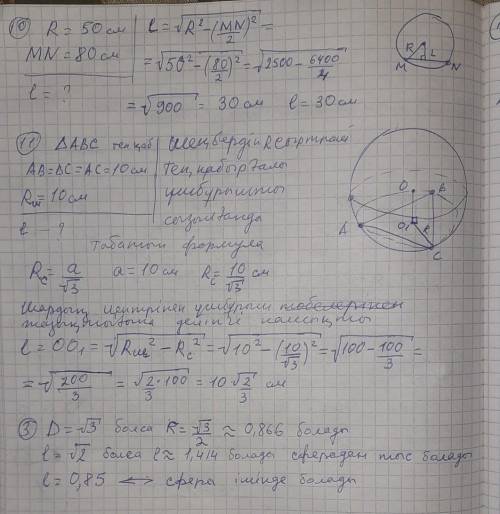 10) R = 50 см
MN = 80 см
l = ?
l = √(R² − (MN/2)²) =
= √(50² − (80/2)²) = √(2500 − 6400/4)
= √900 = 30 см l = 30 см
R L
M N
11) △ABC тең қаб
AB = BC = AC = 10 см
Rш = 10 см
l − ?
Шеңбердің R сырттай
Тең қабырғалы
үшбұрышты
сызылғанда
табатын формула
O B
A O₁ R
C
Rc = a/√3 a = 10 см Rc = 10/√3 см
Шардың центрінен үшбұрыш
жазықтығына дейінгі қашықтық
l = OO₁ = √(Rш² − Rc²) = √(10² − (10/√3)²) = √(100 − 100/3) =
= √(200/3) = √(2·100/3) = 10√(2/3) см
3) D = √3 болса R = √3/2 ≈ 0,866 болады
l = √2 болса l ≈ 1,414 болады сферадан тыс болады
l = 0,85 ⟺ сфера ішінде болады